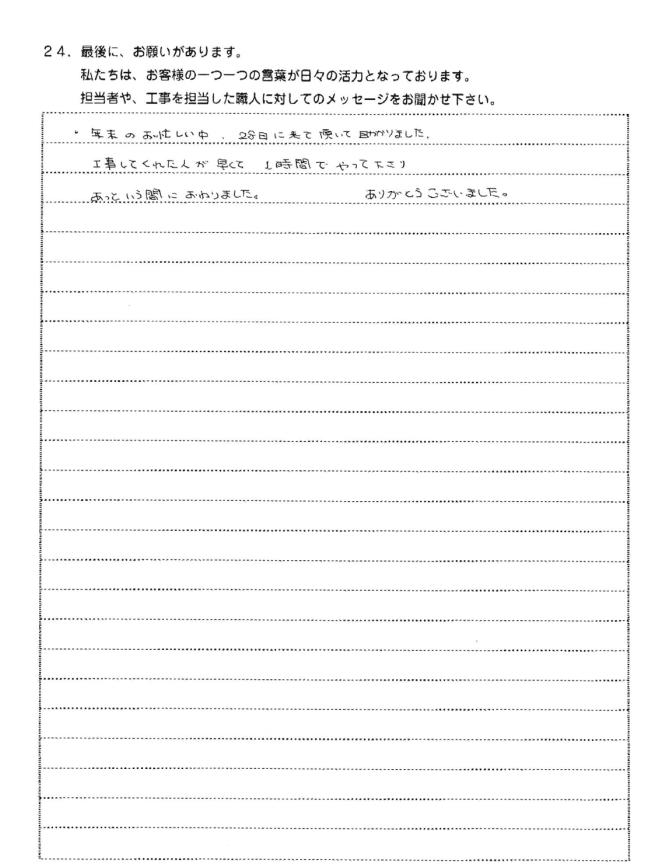 24. 最後に、お願いがあります。
私たちは、お客様の一つ一つの言葉が日々の活力となっております。
担当者や、工事を担当した職人に対してのメッセージをお聞かせ下さい。
・年末のお忙しい中、28日に来て頂いて助かりました。
工事してくれた人が早くて 1時間でやって下さり
あっという間におわりました。 ありがとうございました。